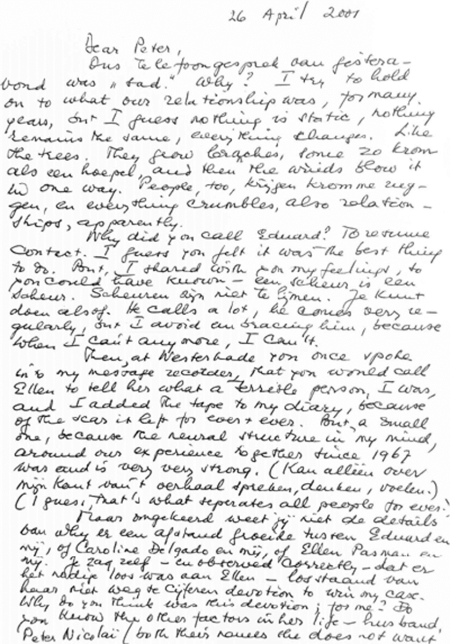 26 April 2001
Dear Peter,
Ons telefoongesprek van gistera-
vond was „sad." Why? I try to hold
on to what our relationship was, for many
years, but I guess nothing is static, nothing
remains the same, everything changes. Like
the trees. They grow branches, some zo krom
als een hoepel, and then the winds blow it
in one way. People, too, krijgen kromme rug-
gen, en everything crumbles, also relation-
ships, apparently.
Why did you call Eduard? To resume
contact. I guess you felt it was the best thing
to do. But, I shared with you my feelings, so
you could have known – een scheur is een
scheur. Scheuren zijn niet te lijmen. Je kunt
doen alsof. He calls a lot, he comes very re-
gularly, but I avoid embracing him, because
when I can't anymore, I can't.
Then, at Westerkade you once spoke
into my message recorder, that you would call
Ellen to tell her what a terrible person I was,
and I added the tape to my diary, because
of the scar it left for ever + ever. But, a small
one, because the neural structure in my mind,
around our experience together since 1967
was and is very very strong. (Kan alléén over
mijn kant van 't verhaal spreken, denken, voelen.)
(I guess, that's what seperates all people for ever.)
Maar omgekeerd weet jij niet de details
van why er een afstand groeide tussen Eduard en
mij, of Caroline Delgado en mij, of Ellen Pasman en
my. Je zag zelf – en observed correctly – dat er
het nodige loos was aan Ellen – losstaand van
haar niet weg te cijferen devotion to win my case.
Why do you think was this devotion, for me? Do
you know the other factors in her life – husband,
Peter Nicolaï (both their names she does not want